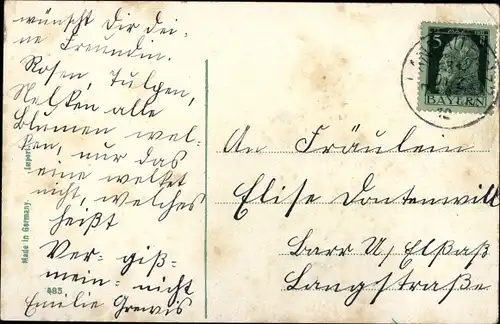 wünscht Dir Dei-
ne Freundin.
Rosen, Tulpen,
Nelken alle
Blumen wel-
ken, nur das
eine welket
nicht, welches
heißt
Ver- giß-
mein- nicht
Emilie
Made in Germany.
Import
483
5
BAYERN
An Fräulein
Elise Dontenwill
Barr U/ Elßaß
Langstraße